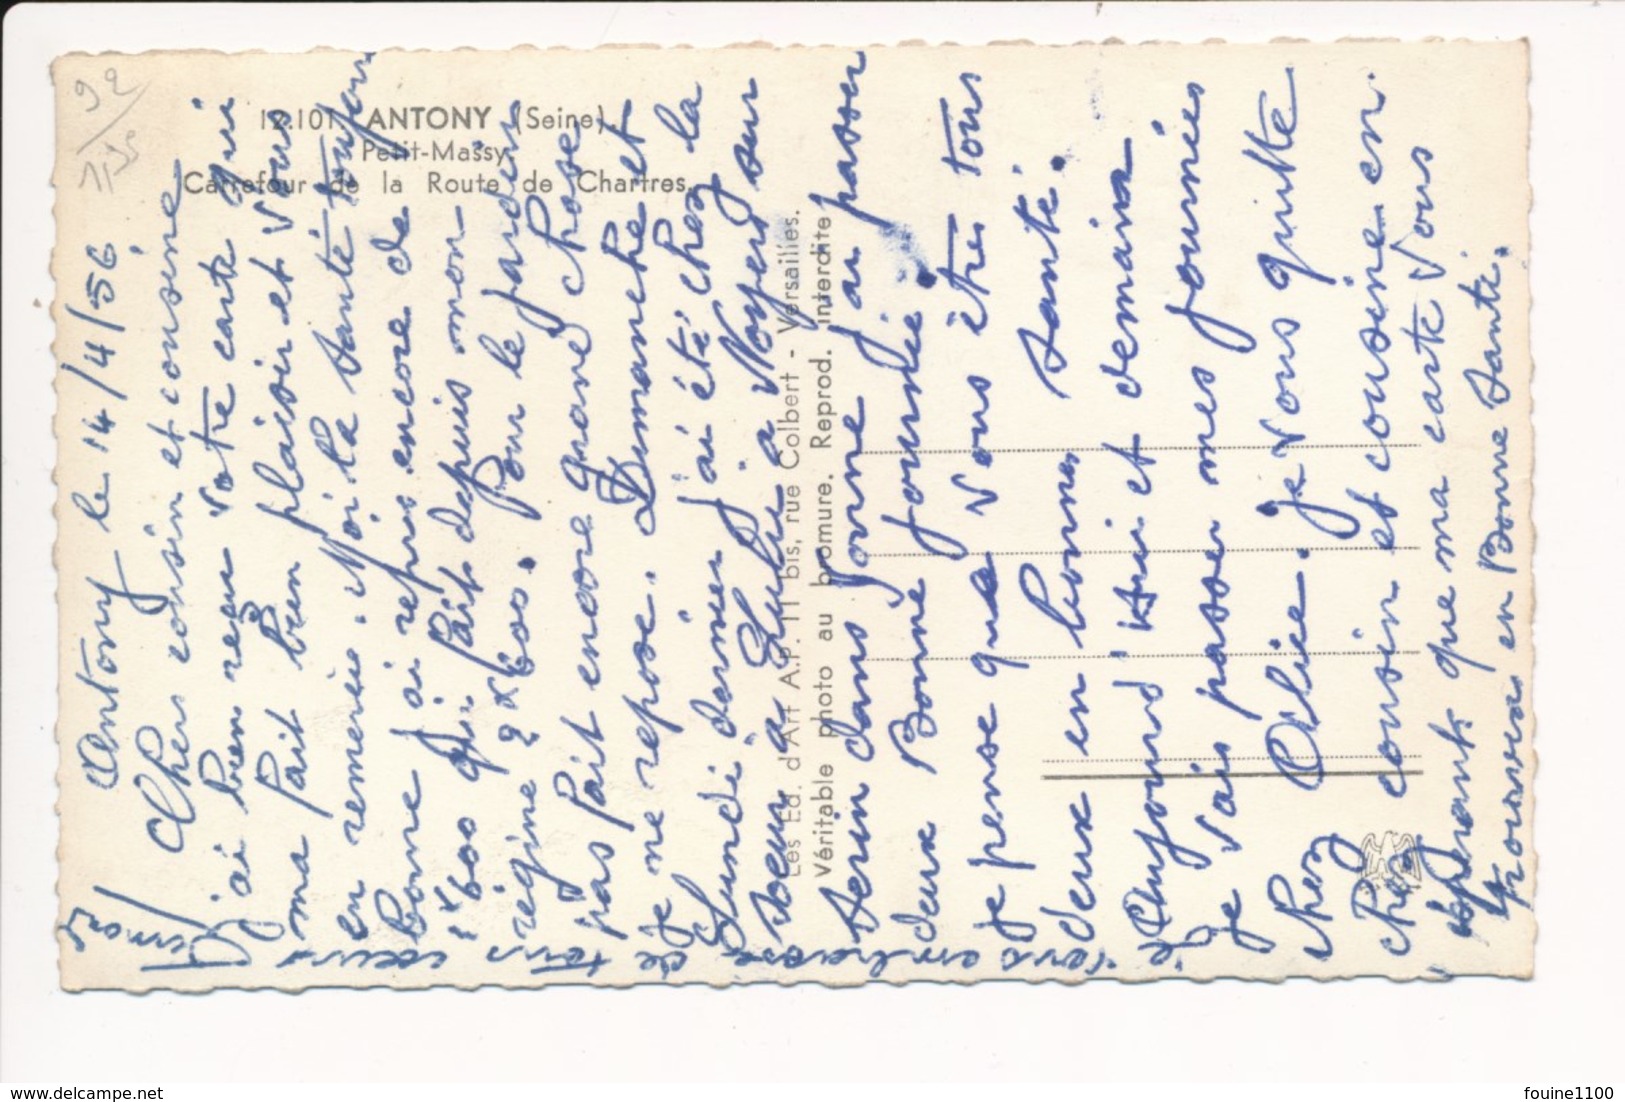 92
12.101 ANTONY (Seine).
Petit-Massy.
Carrefour de la Route de Chartres.
Les Ed. d'Art A.P. 11 bis, rue Colbert - Versailles.
Véritable photo au bromure. Reprod. interdite
Antony le 14/4/56
Chers cousin et cousine
j'ai bien reçu votre carte qui
ma fait bien plaisir et vous
en remercie. Moi la santé toujour
bonne j'ai repris encore de
qui fait depuis mon
régime 2 k 600. Pour le jardin
pas fait encore grand chose
je me repose. Dimanche et
Lundi dernier j'ai été chez la
soeur a Lulu a Noyers sur
dans Yonne j'ai passer
deux Bonne journée.
je pense que vous êtes tous
deux en bonne santé.
Aujourd'hui et demain
je vais passer mes journées
chez Alice. je vous quitte
chez cousin et cousine en
espérant que ma carte vous
trouvera en Bonne Santé.
je vous embrasse de tous coeurs